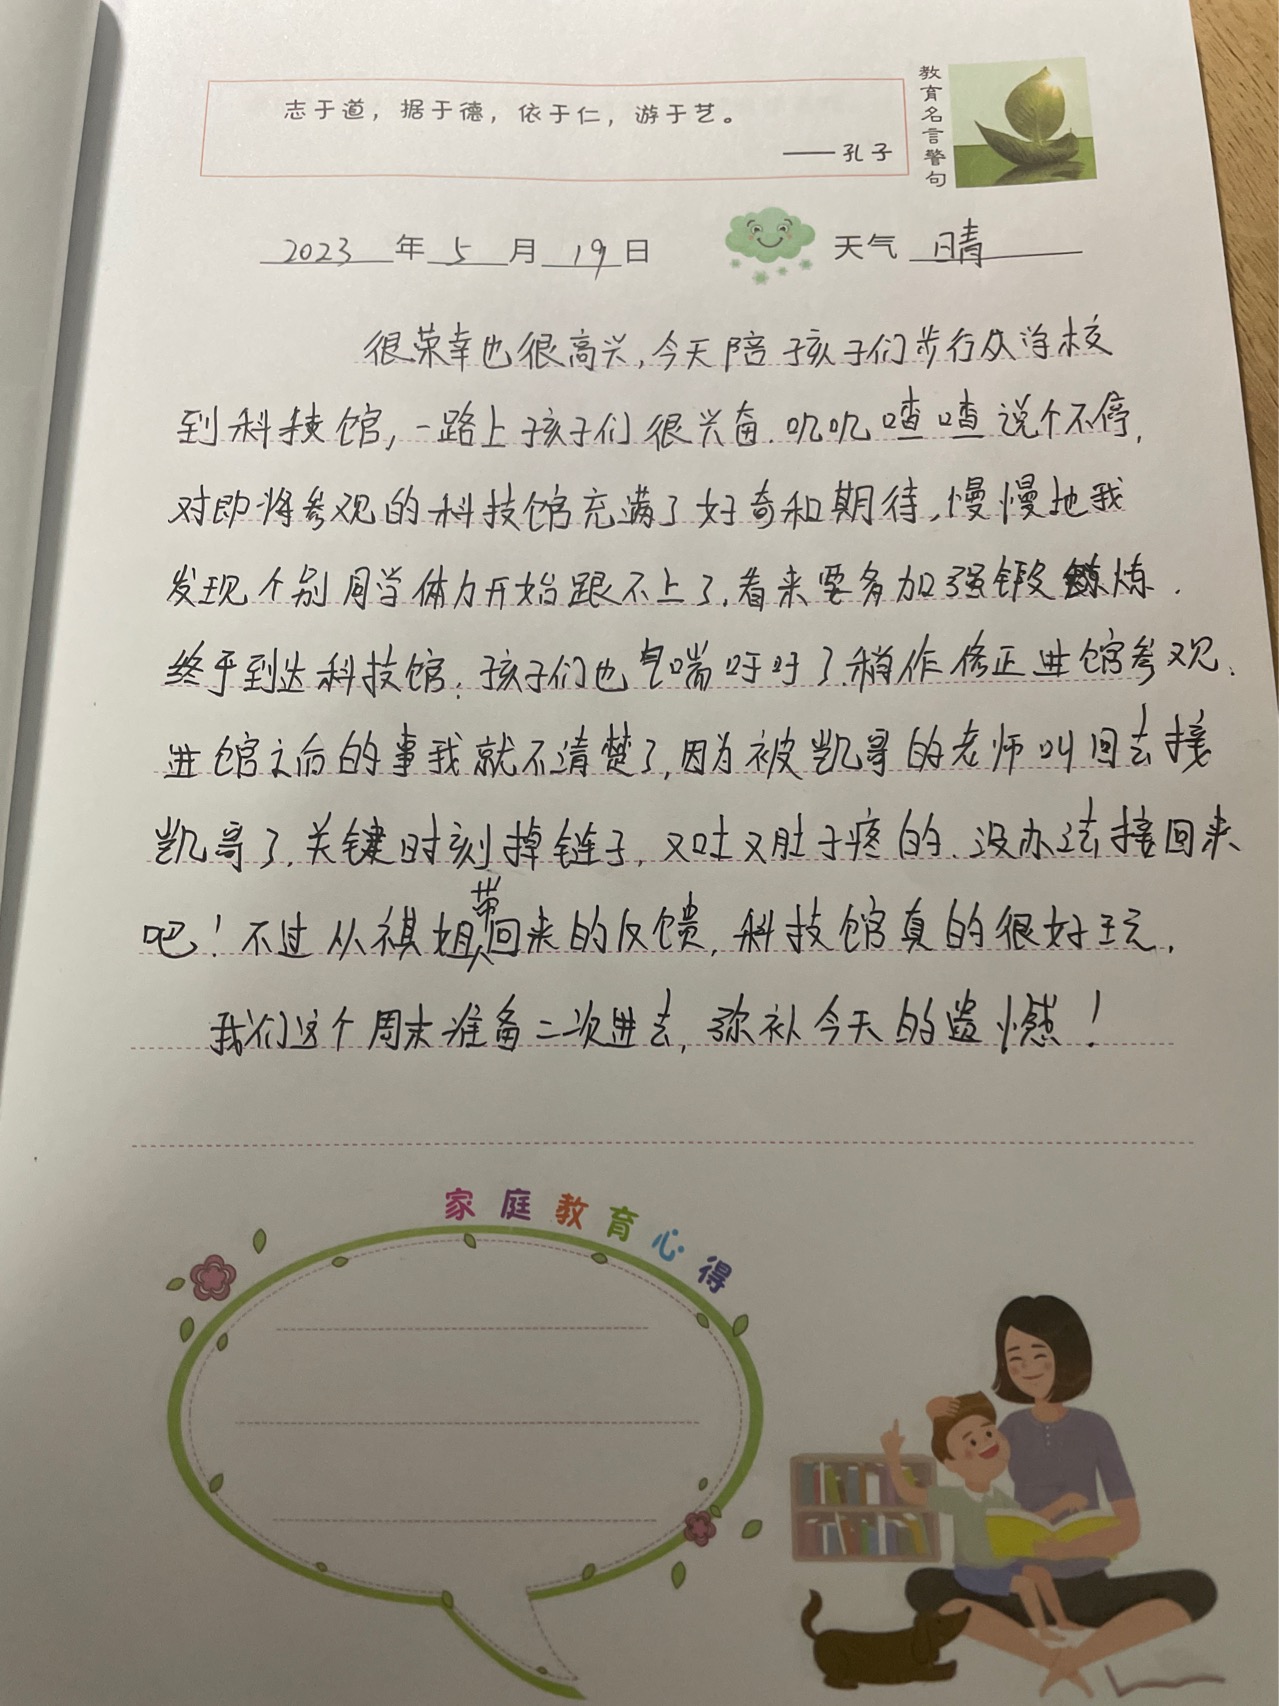 志于道，据于德，依于仁，游于艺。
——孔子
教育名言警句
2023年5月19日 天气 晴
很荣幸也很高兴，今天陪孩子们步行从学校
到科技馆，一路上孩子们很兴奋．叽叽喳喳说个不停，
对即将参观的科技馆充满了好奇和期待，慢慢地我
发现个别同学体力开始跟不上了，看来要多加强锻炼．
终于到达科技馆．孩子们也气喘吁吁了．稍作修正进馆参观．
进馆之后的事我就不清楚了，因为被凯哥的老师叫回去接
凯哥了，关键时刻掉链子，又吐又肚子疼的．没办法接回来
吧！不过从祺姐带回来的反馈，科技馆真的很好玩，
我们这个周末准备二次进去，弥补今天的遗憾！
家庭教育心得